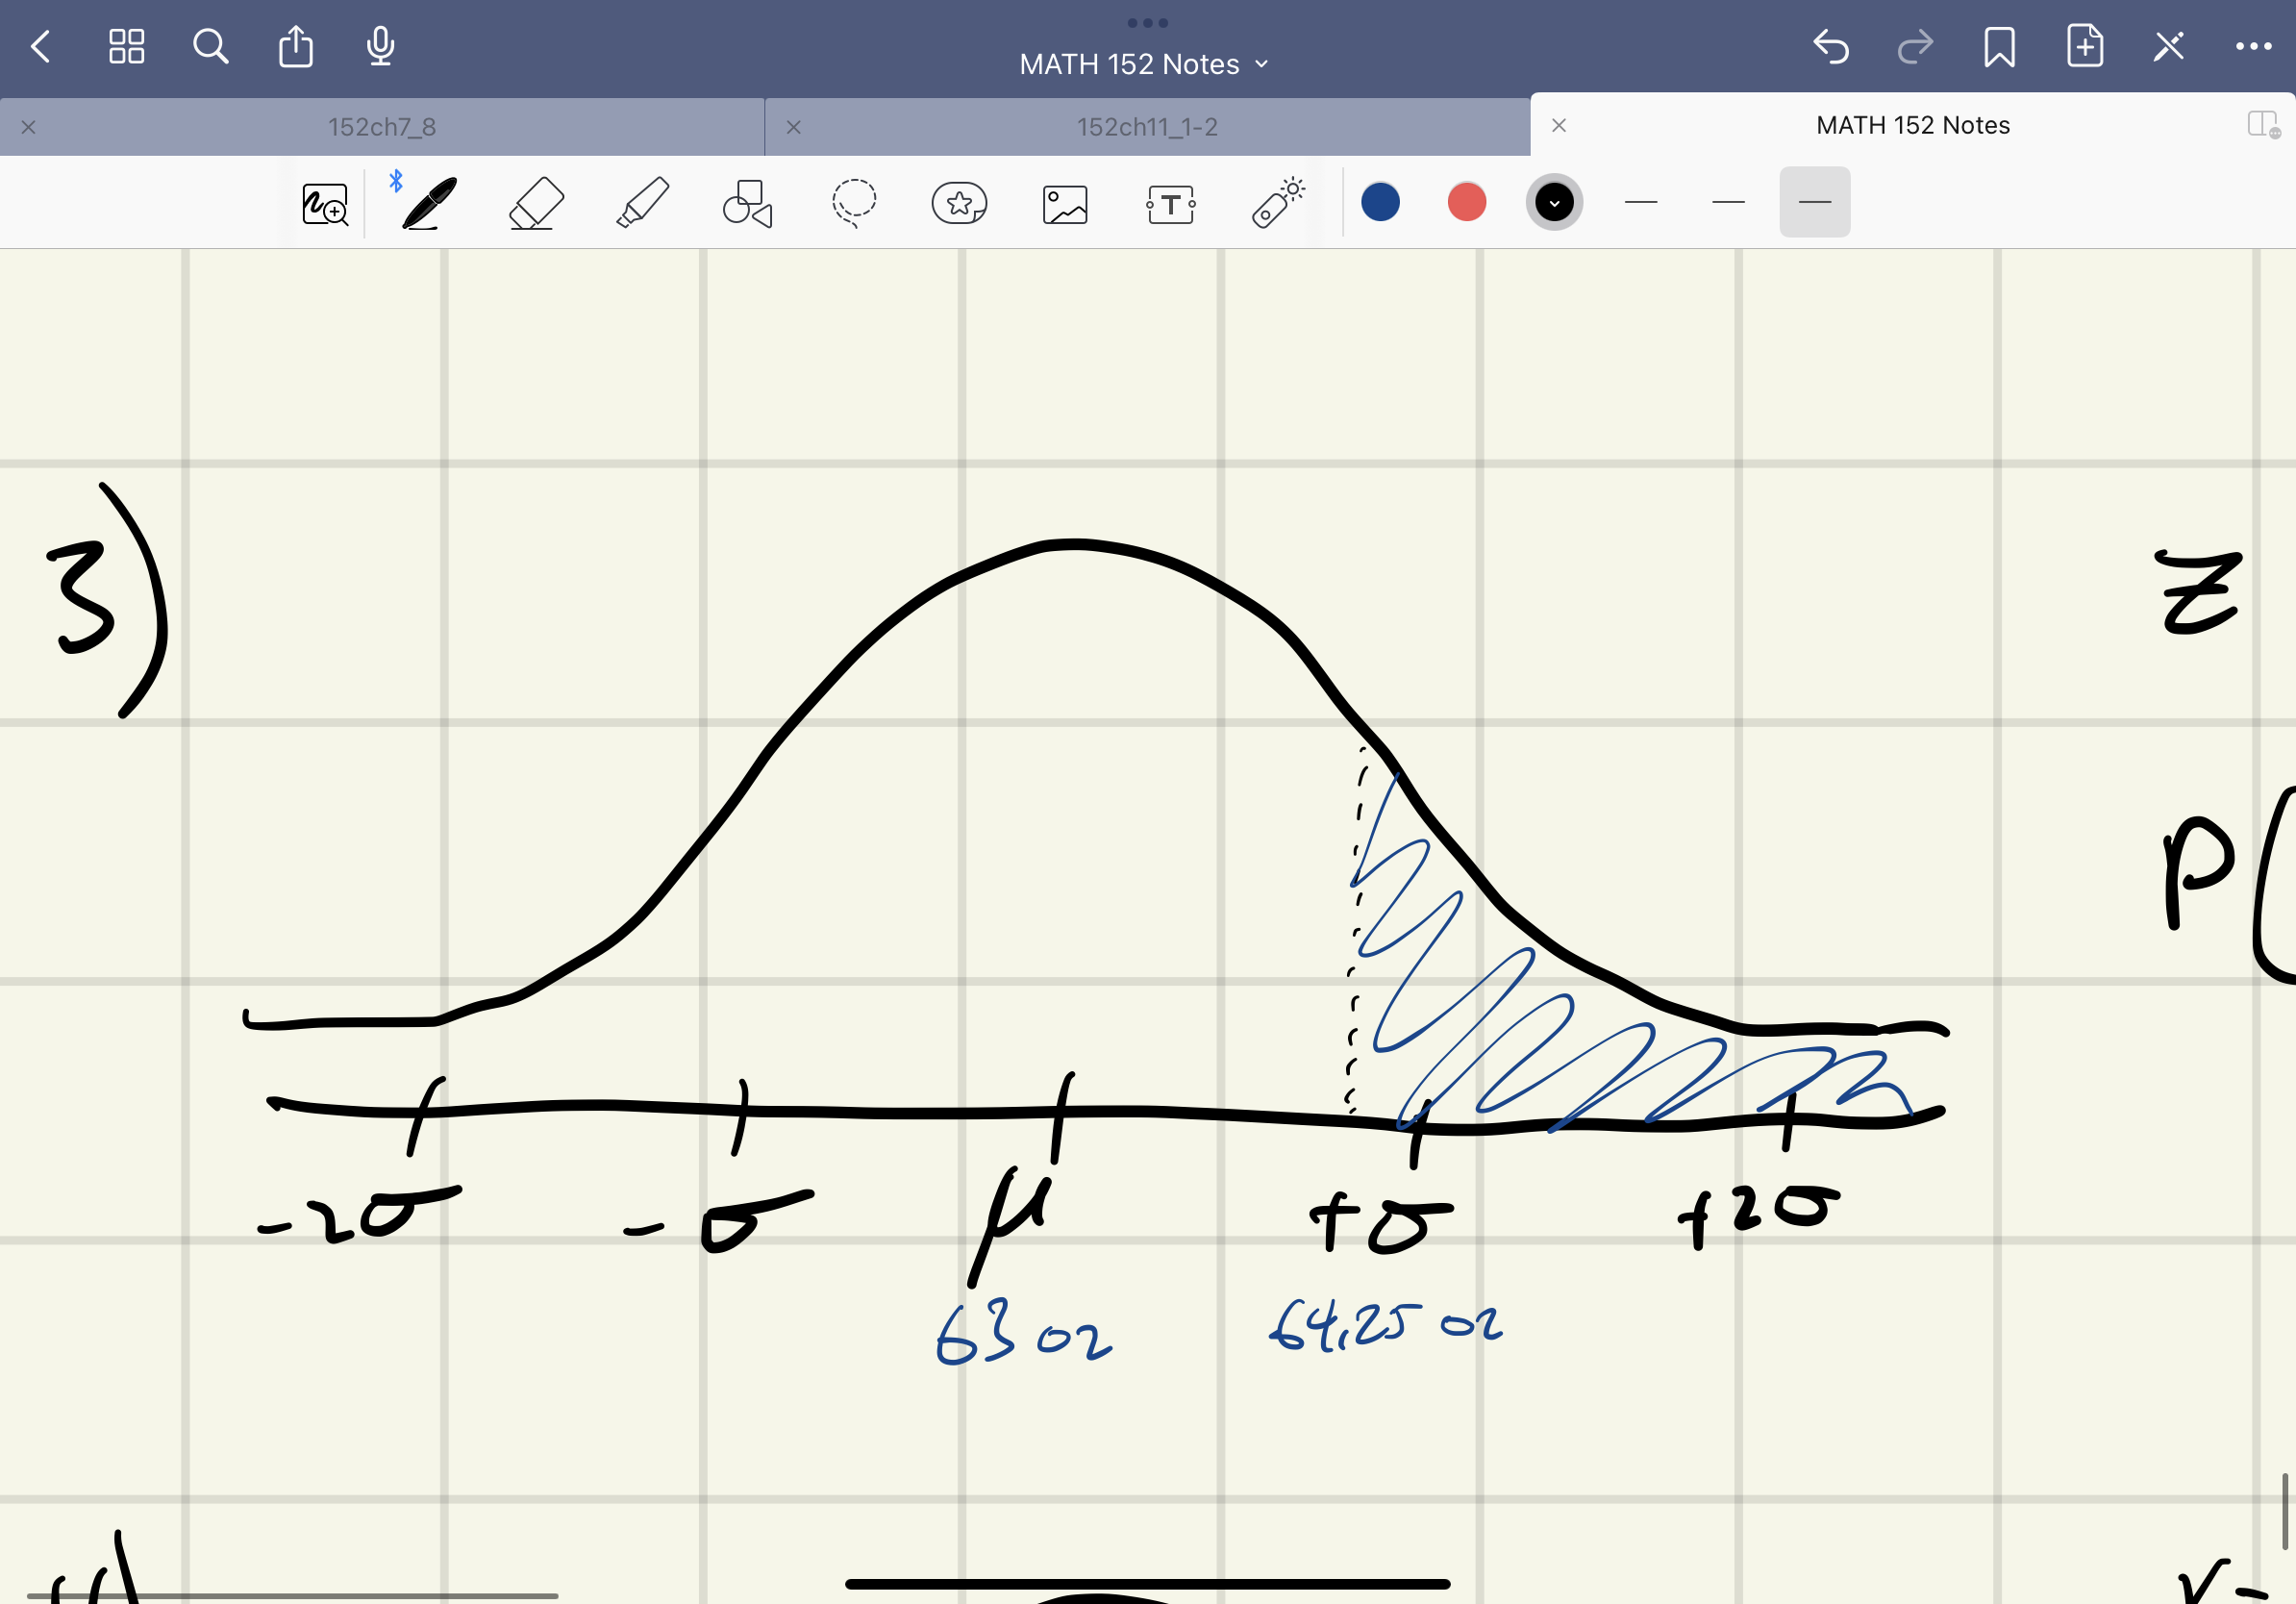 MATH 152 Notes
152ch7_8
152ch11_1-2
MATH 152 Notes
T
3)
z
P(
-2σ -σ μ +σ +2σ
63 oz 64.25 oz